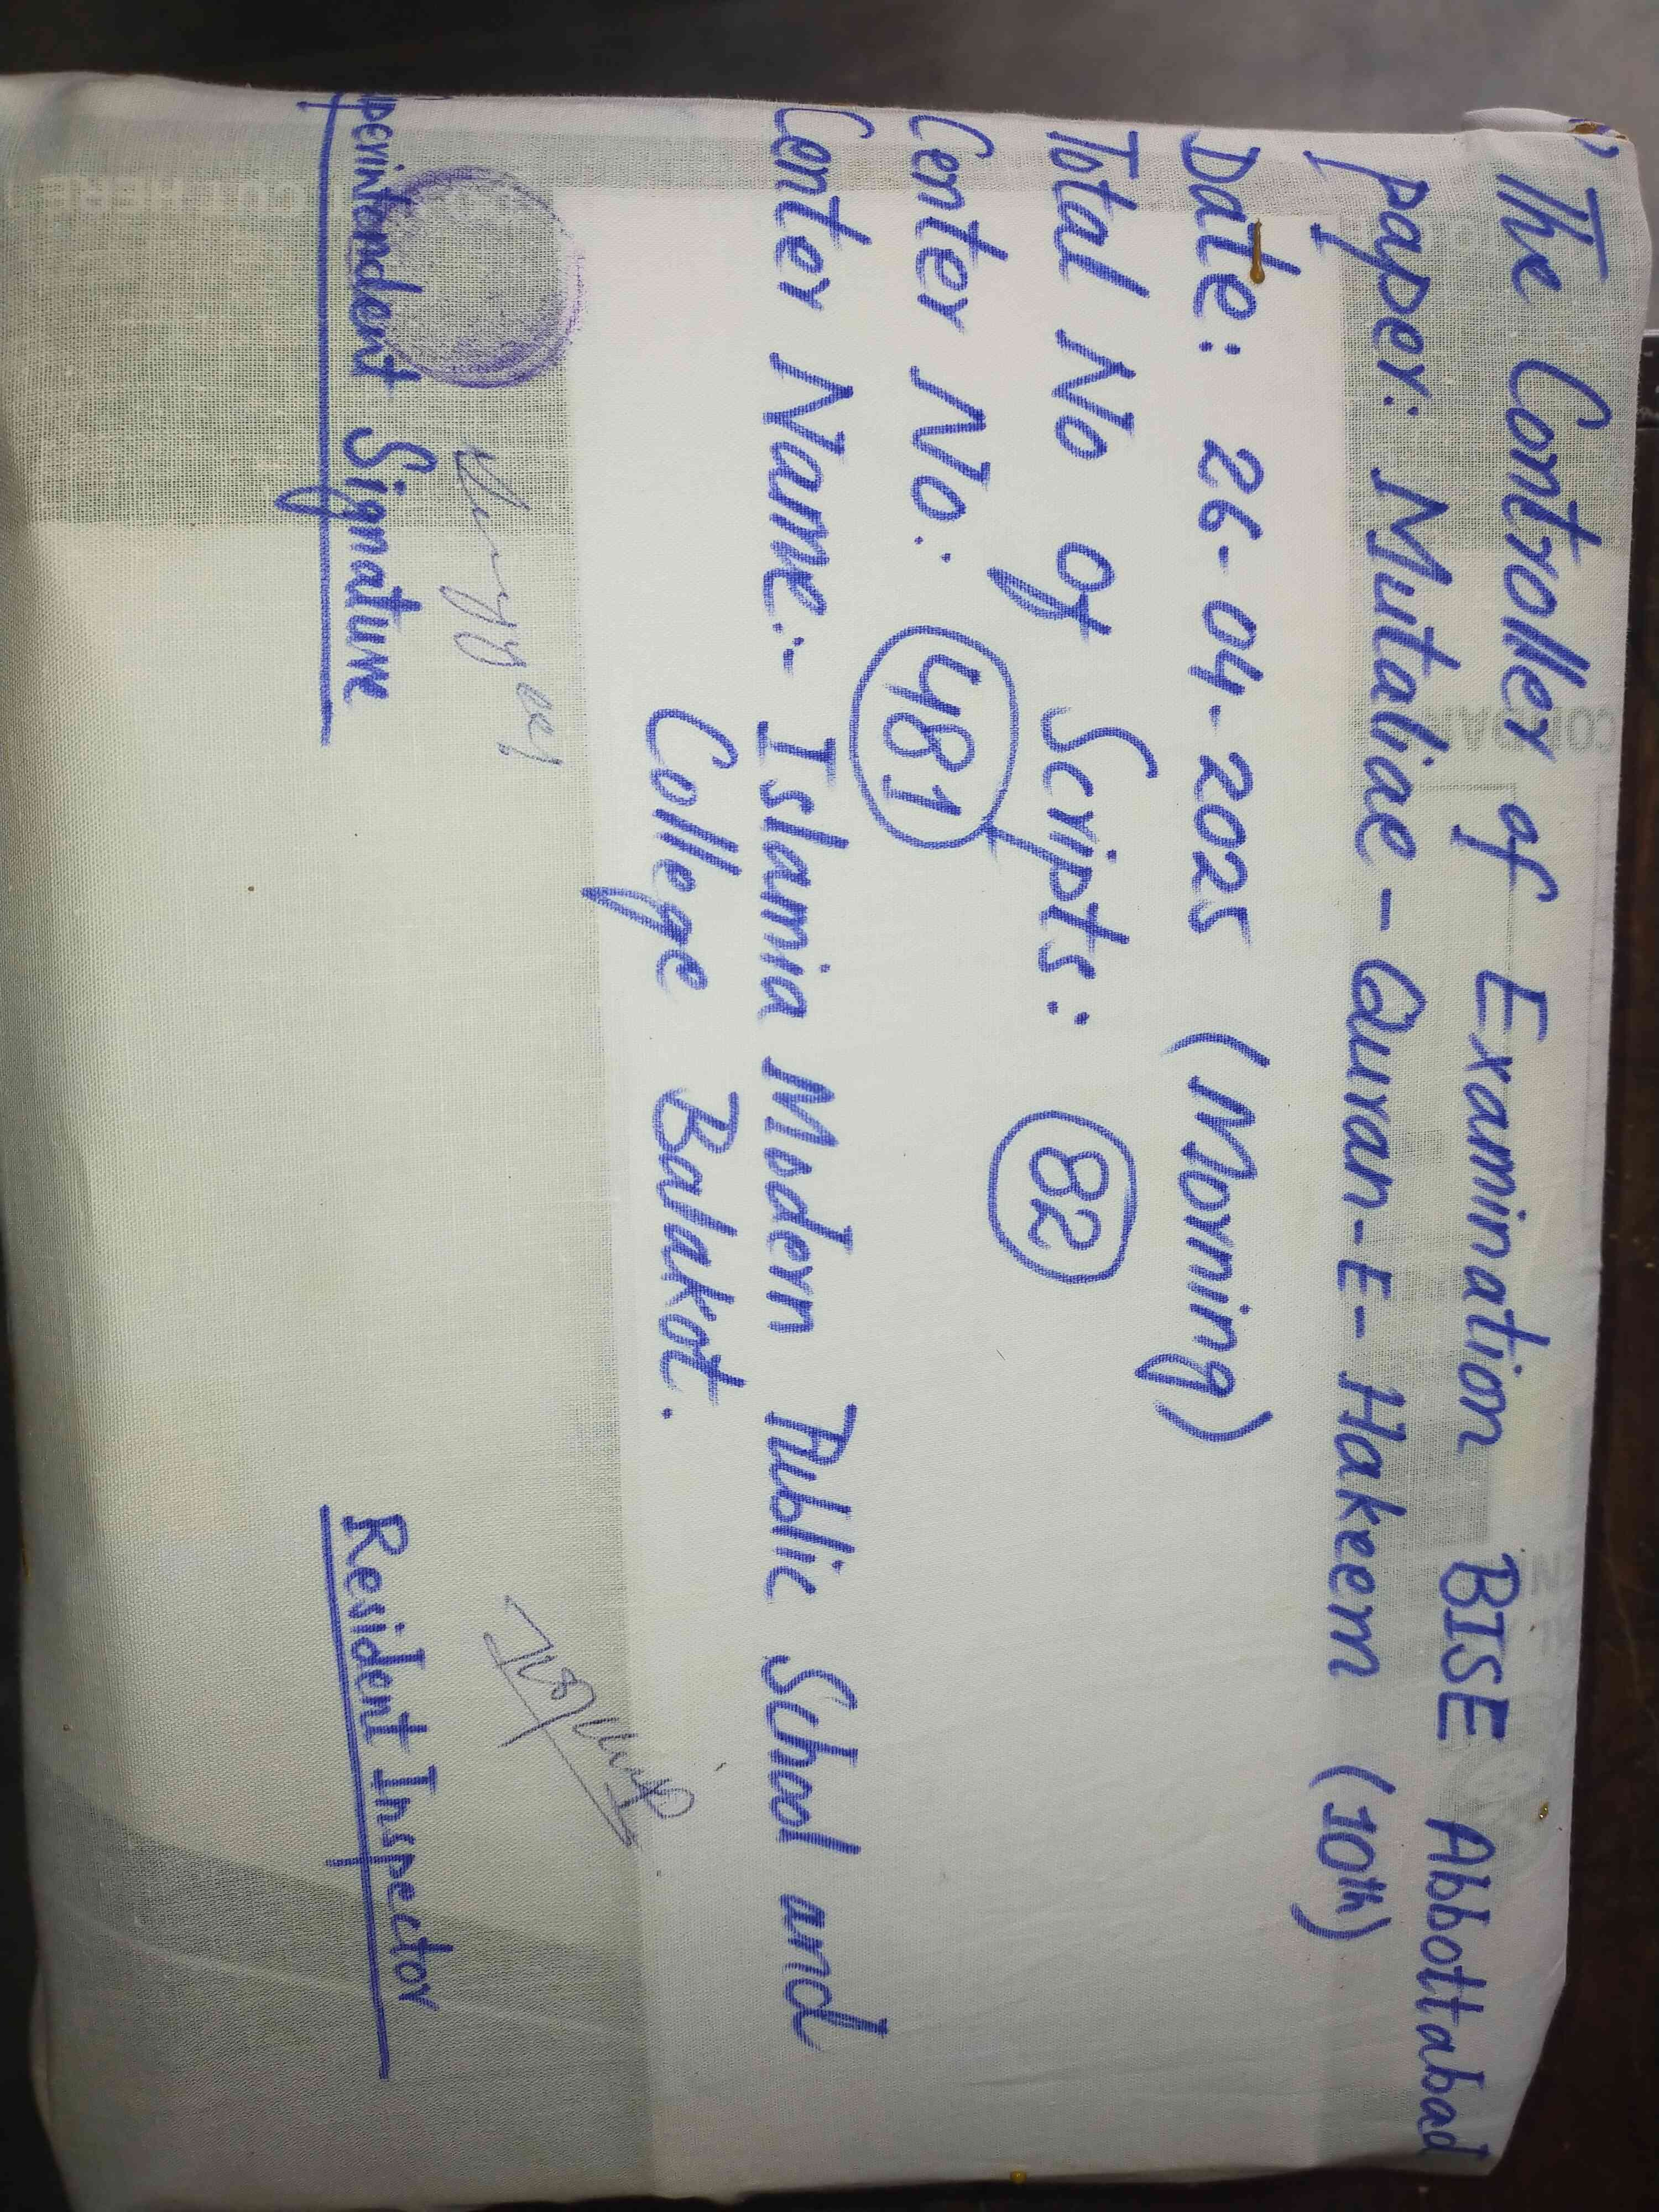 The Controller of Examination BISE Abbottabad
paper: Mutaliae - Quran-E-Hakeem (10th)
Date: 26-04-2025 (Morning)
Total No of Scripts: 82
Center No: 481
Center Name:- Islamia Modern Public School and
College Balakot.
Superintendent Signature
Resident Inspector
CUT HERE